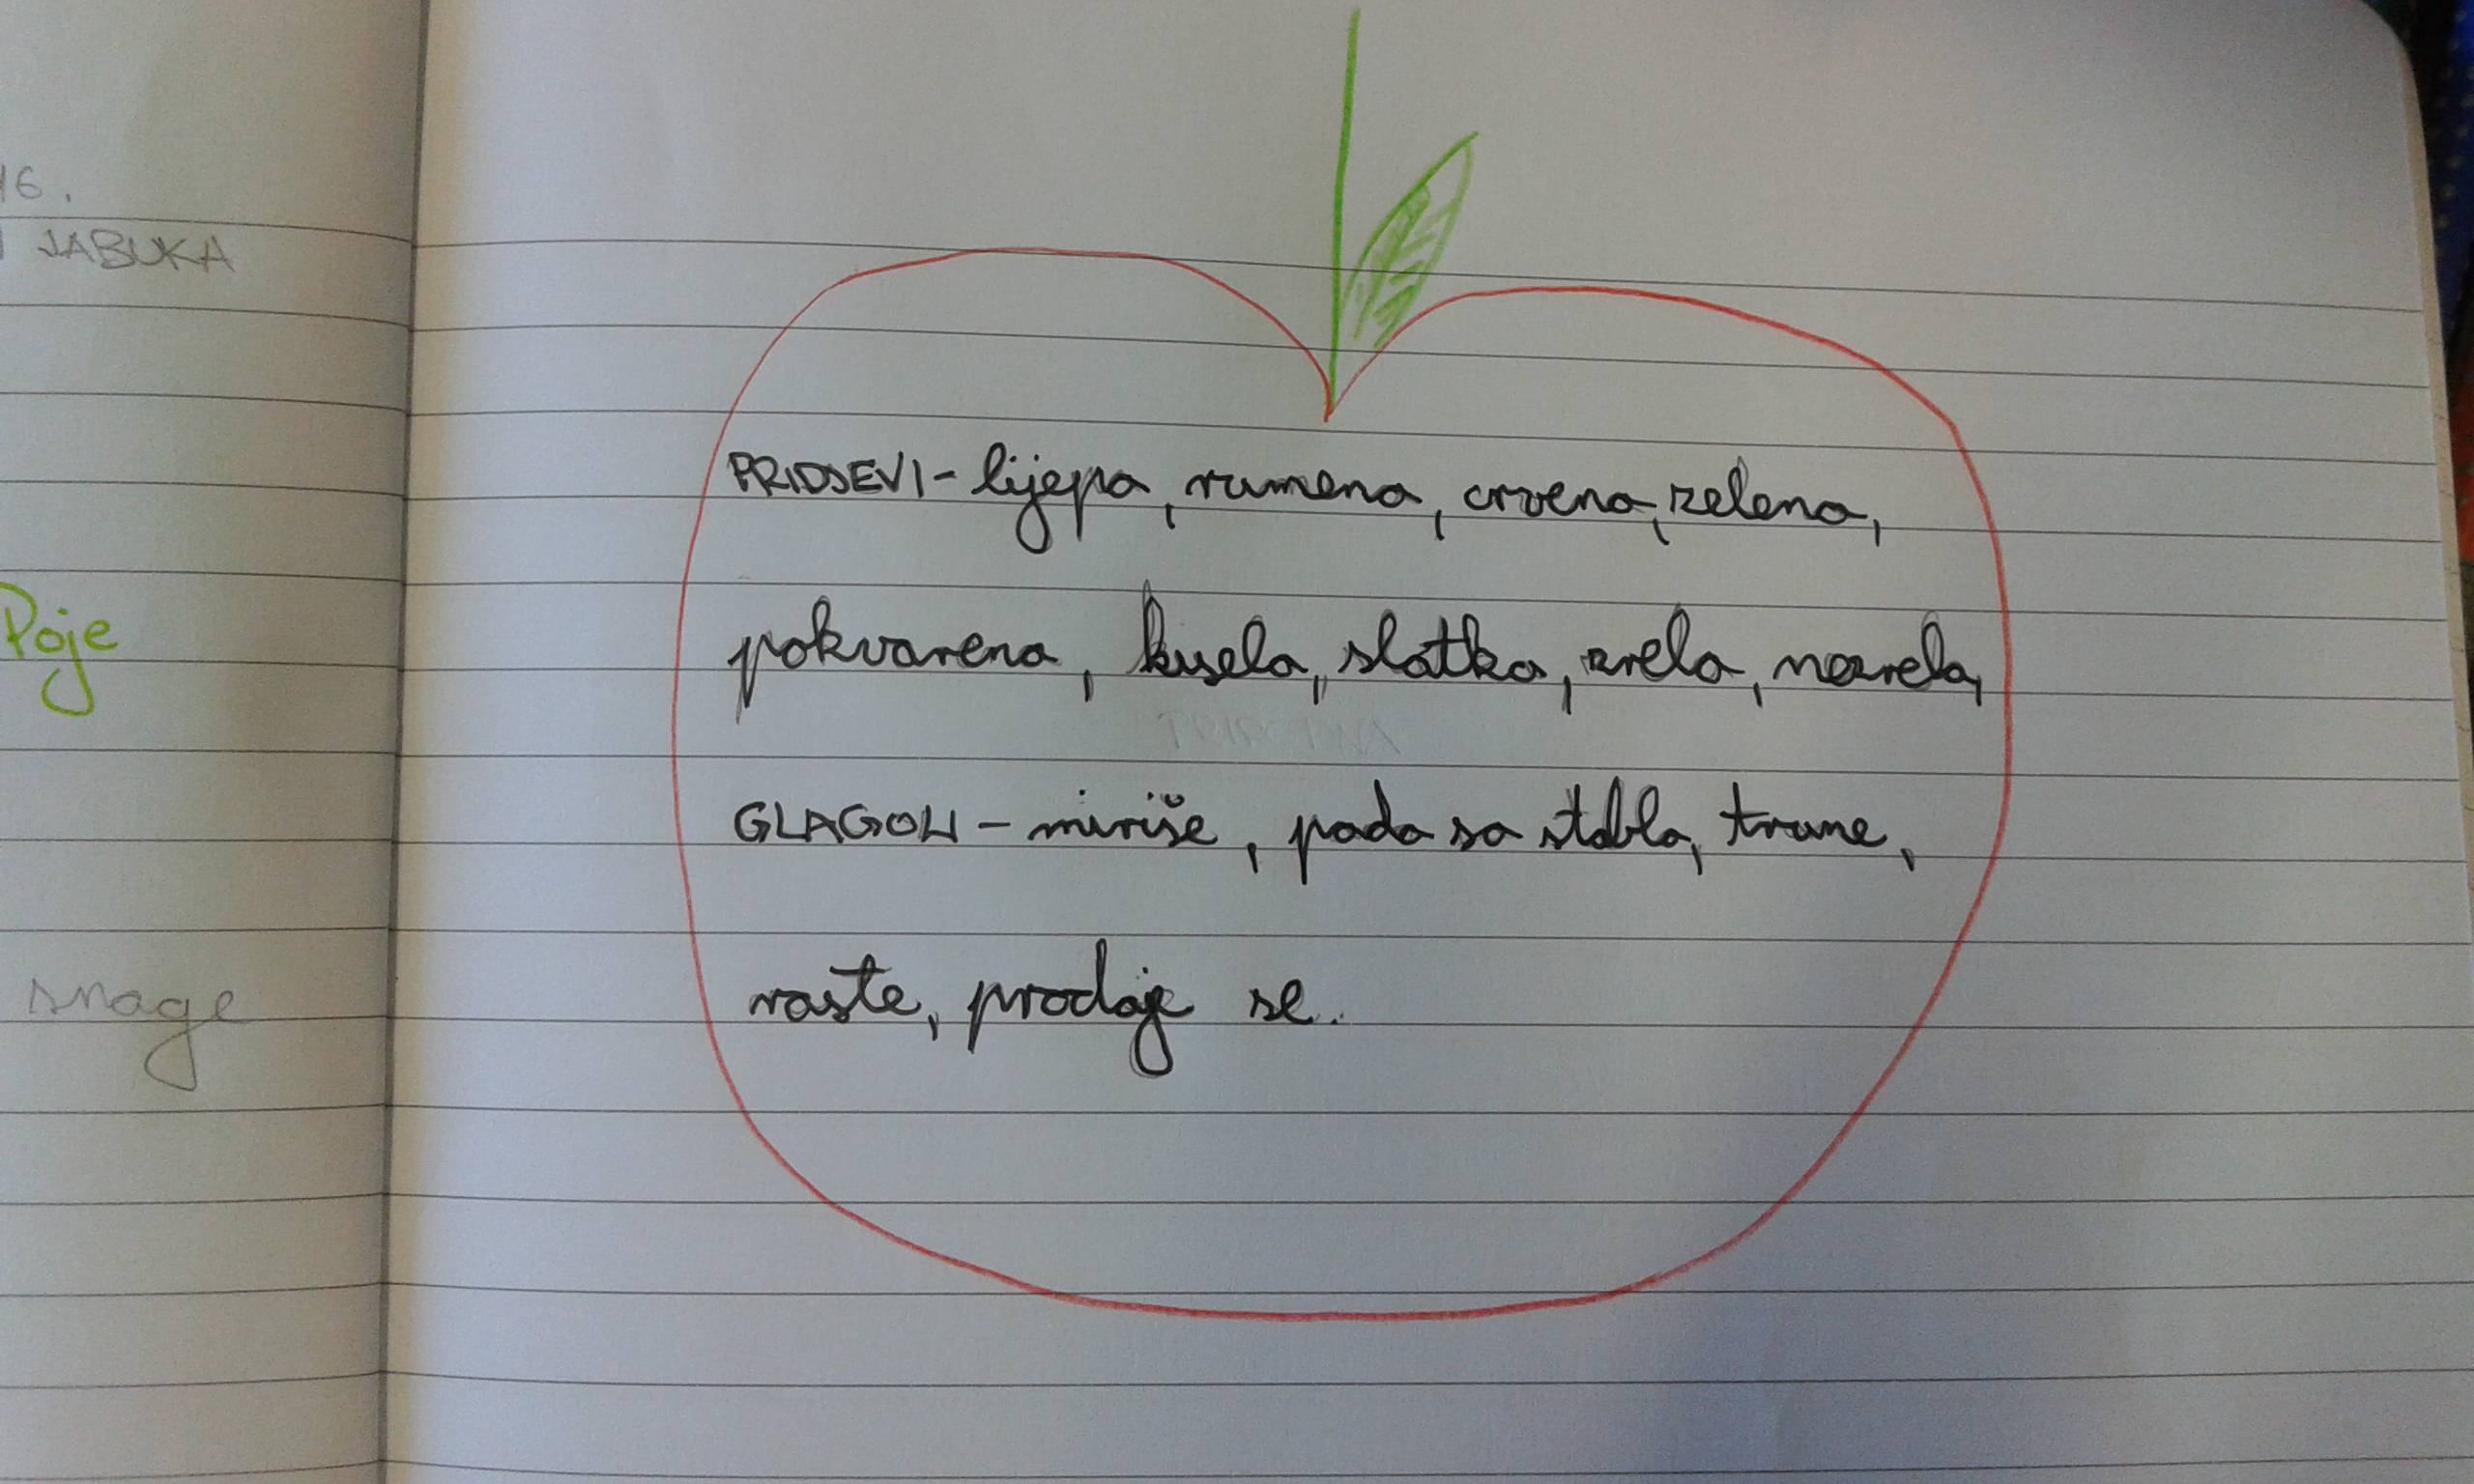 16.
JABUKA
Poje
snage
PRIDJEVI - lijepa, rumena, crvena, zelena,
pokvarena, kisela, slatka, zrela, nezrela,
GLAGOLI - miriše, pada sa stabla, trune,
raste, prodaje se.